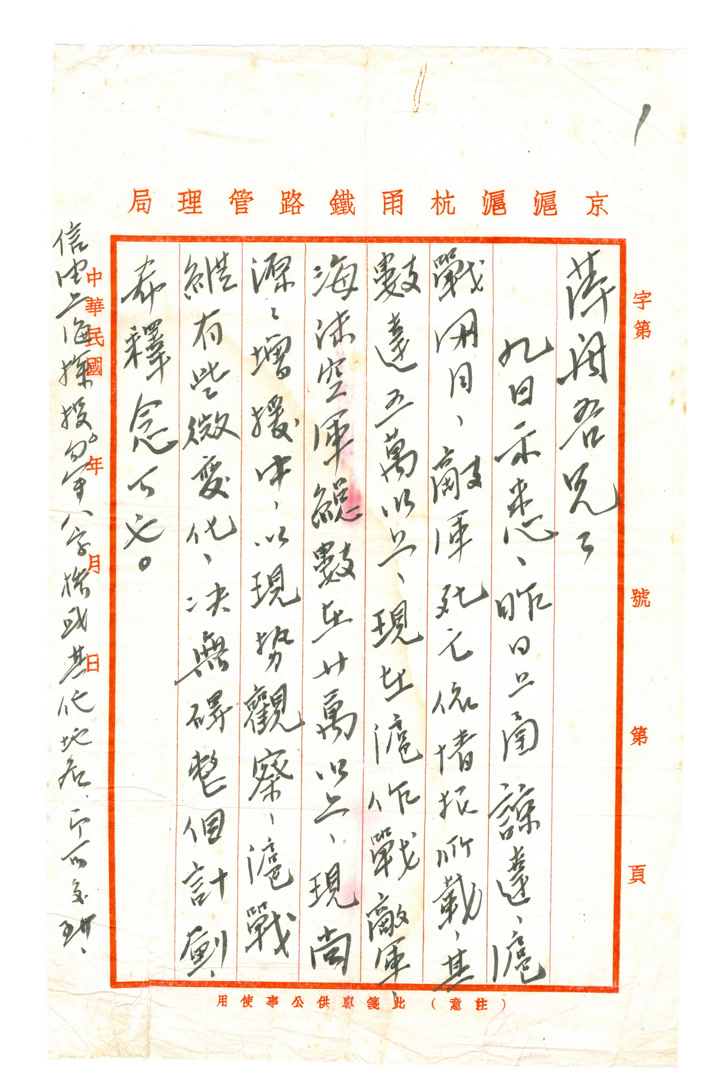 京滬滬杭甬鐵路管理局
字第 號 第 頁
薛閣吾兄：
九日示悉、昨日上函諒達、滬
戰開月、敵軍死亡依情报所載、其
數達五萬以上、現在滬作戰敵軍、
海陆空軍總數在廿萬以上、現尚
源々增援中、以現势觀察、滬戰
縱有些微变化、决無碍整個計劃、
希釋念可也。
中華民國 年 月 日
信由上海探投 軍八字 或其他地名、
（注意）此箋專供公事使用